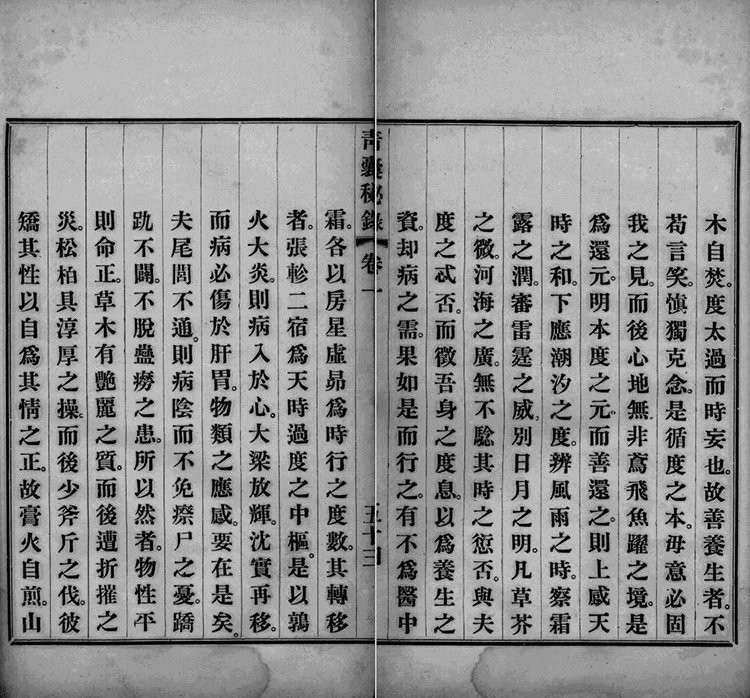 木自焚。度太過而時妄也。故善養生者。不
苟言笑。愼獨克念。是循度之本。毋意必固
我之見。而後心地無非鳶飛魚躍之境。是
爲還元。明本度之元。而善還之。則上感天
時之和。下應潮汐之度。辨風雨之時。察霜
露之潤。審雷霆之威。別日月之明。凡草芥
之微。河海之廣。無不騐其時之愆否。與夫
度之忒否。而徵吾身之度息。以爲養生之
資。却病之需。果如是而行之。有不爲醫中
青囊秘錄【卷一
霜。各以房星虛昴爲時行之度數。其轉移
者。張軫二宿爲天時過度之中樞。是以鶉
火大炎。則病入於心。大梁放輝。沈實再移。
而病必傷於肝胃。物類之應感。要在是矣。
夫尾閭不通。則病陰而不免瘵尸之憂。蹻
不鬪。不脫蠱癆之患。所以然者。物性平
則命正。草木有艷麗之質。而後遭折摧之
災。松柏具淳厚之操。而後少斧斤之伐。彼
矯其性以自爲其情之正。故膏火自煎。山